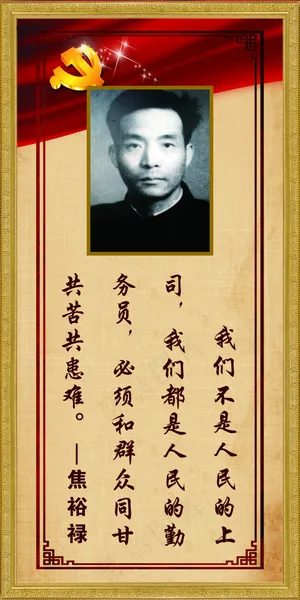 我们不是人民的上
司，我们都是人民的勤
务员，必须和群众同甘
共苦共患难。—焦裕禄